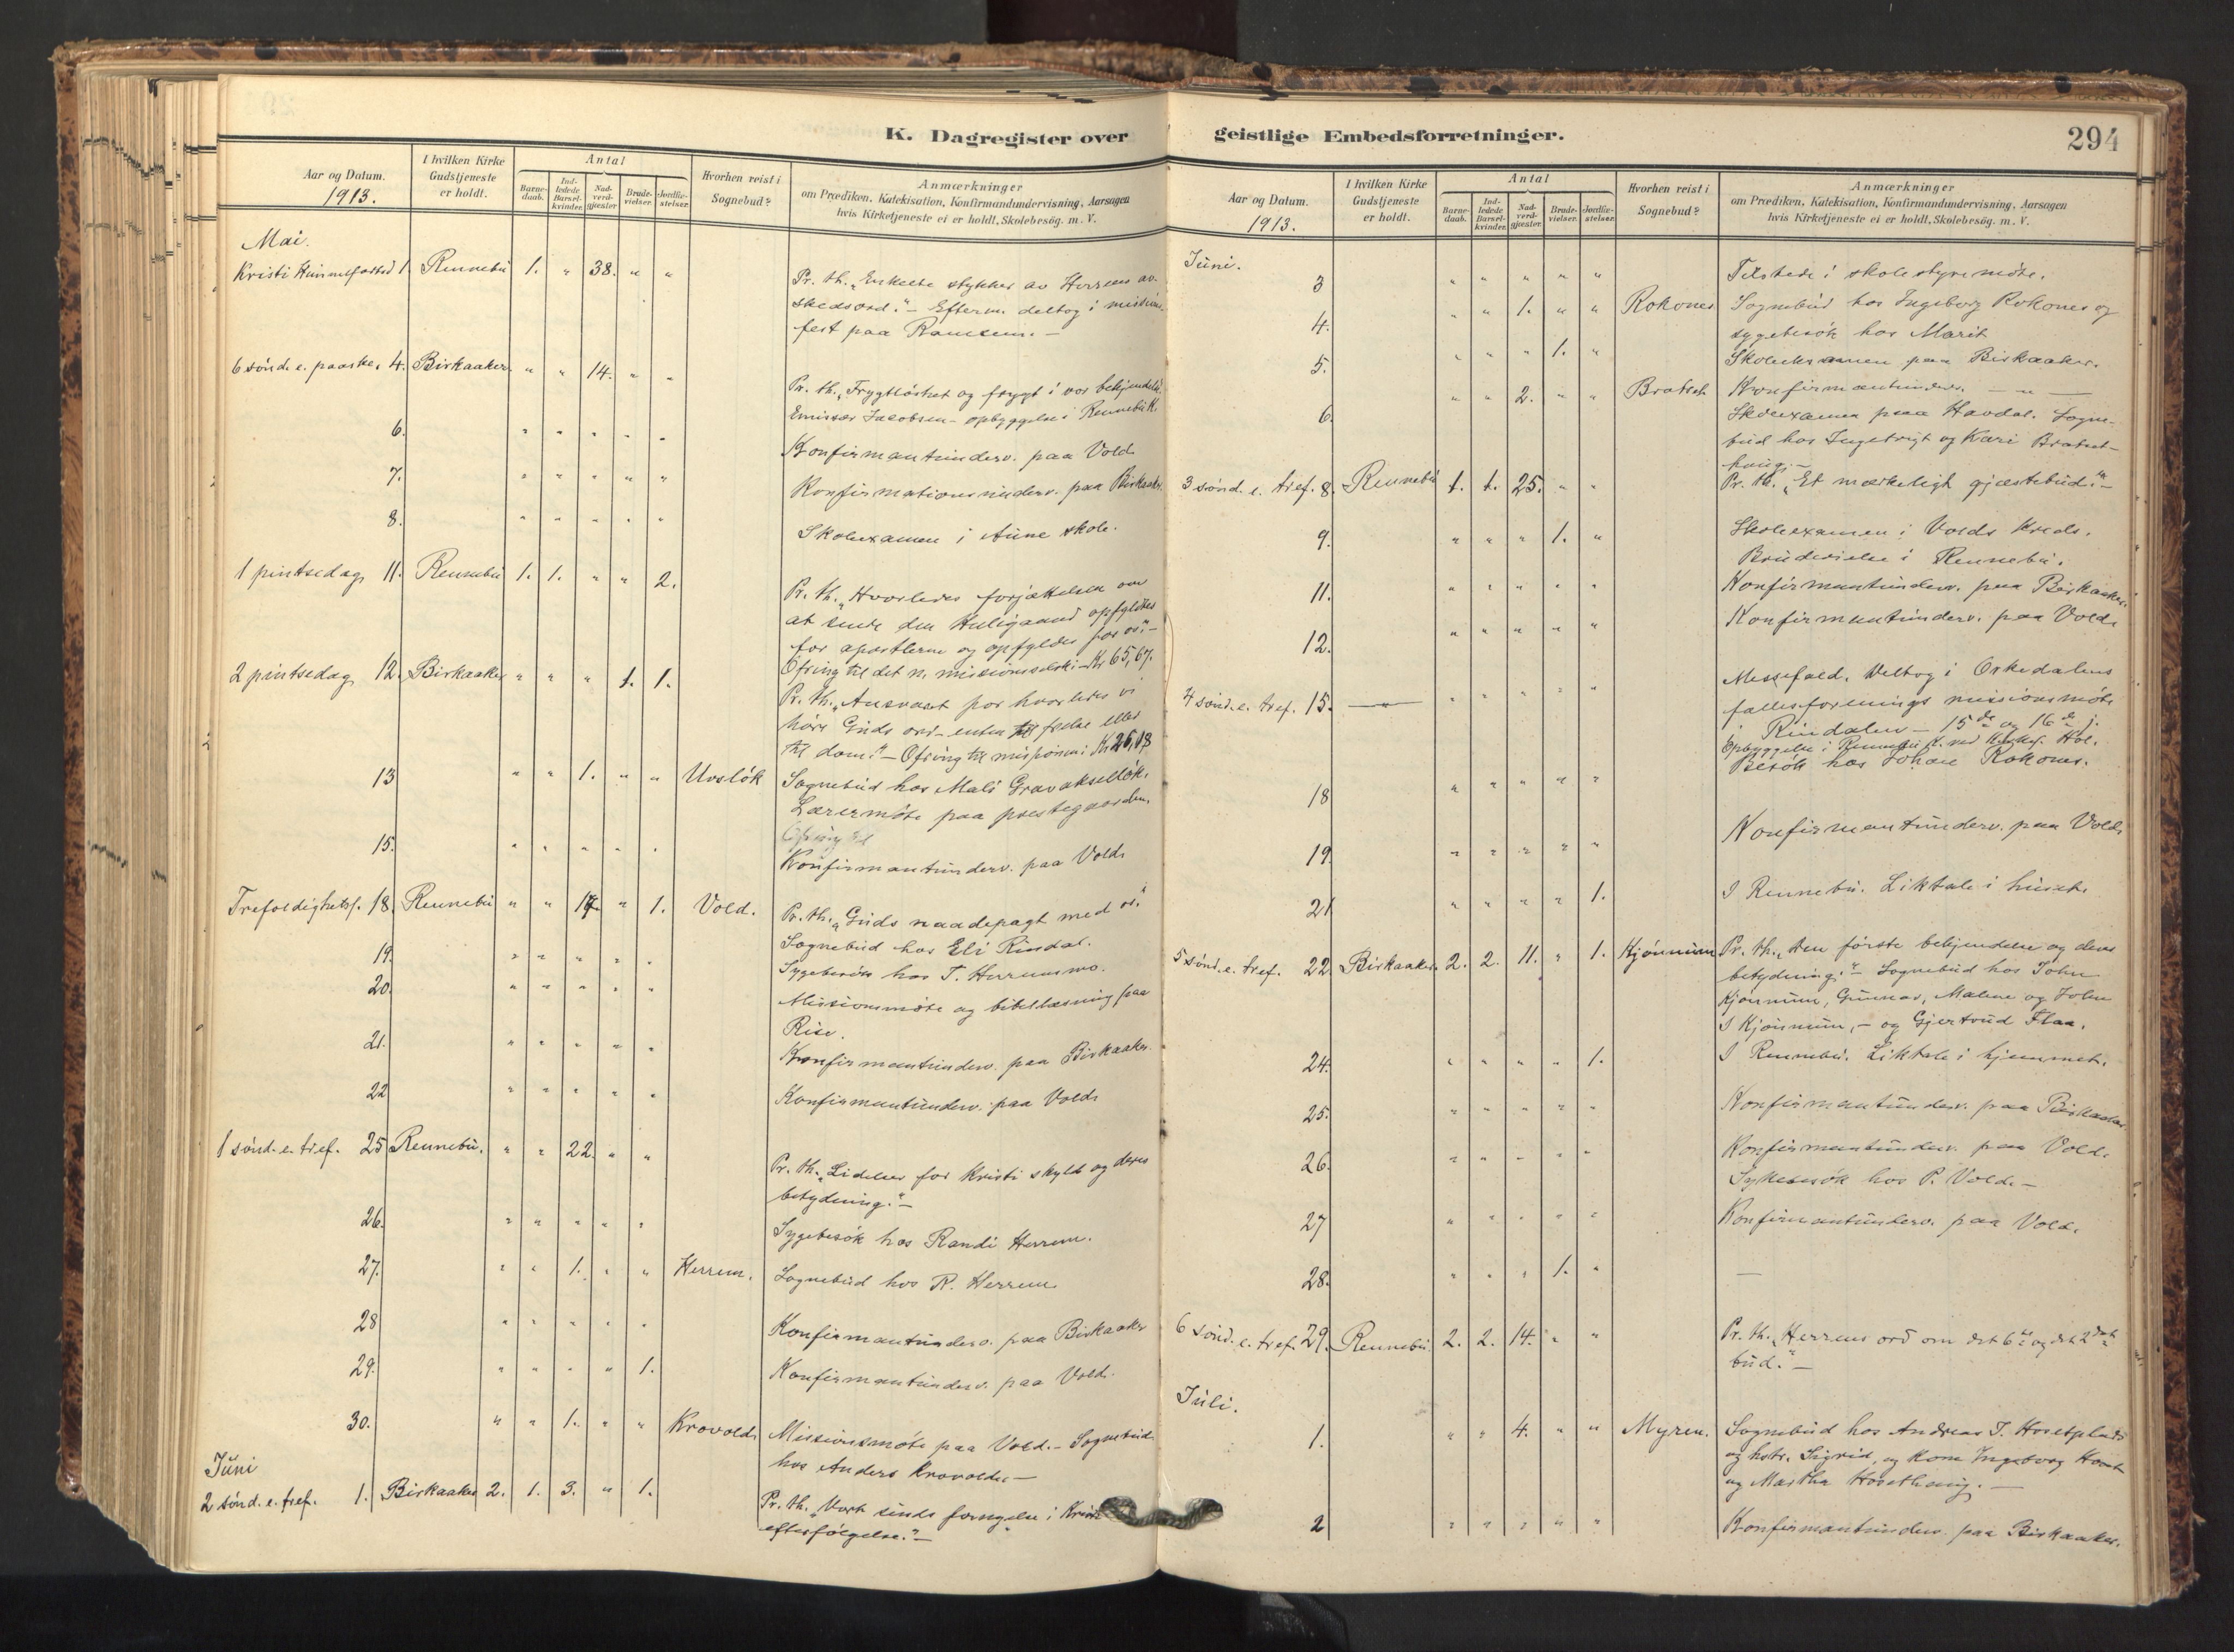 K. Dagregister over
Aar og Datum.
1913.
I hvilken Kirke
Gudstjeneste
er holdt.
Antal
Barne-
daab.
Ind-
ledede
Barsel-
kvinder.
Nad-
verd-
gjæster.
Brude-
vielser.
Jordfæ-
stelser.
Hvorhen reist i
Sognebud?
Anmærkninger
om Prædiken, Katekisation, Konfirmandundervisning, Aarsagen
hvis Kirketjeneste ei er holdt, Skolebesög. m. V.
Mai.
Kristi Himmelfartsd 1. Rennebu 1. " 38. " " Pr. th. "Enkelte stykker av Herrens av-
skedsord." - Efterm. deltog i missions-
fest paa Ramsem. -
6 sönd. e. paaske. 4. Birkaaker " " 14. " " Pr. th. "Frygtlöshet og frygt i vor bekjendelse.
Emissær Jacobsen - opbyggelse i Rennebu K.
6. " " " " " Konfirmantunderv. paa Vold.
7. " " " " " Konfirmationsunderv. paa Birkaaker.
8. " " " " " Skoleexamen i Aune skole.
1 pintsedag 11. Rennebu 1. 1. " " 2. Pr. th. "Hvorledes forjættelsen om
at sende den Helligaand opfyldtes
for apostlerne og opfyldes for os." -
Ofring til det n. missionsselsk. - Kr 65,67.
2 pintsedag 12. Birkaaker " " " 1. 1. Pr. th. "Ansvaret for hvorledes vi
höre Guds ord - enten til frelse eller
til dom." - Ofring til missionen: Kr 26,18
13 " " 1. " " Uvslök Sognebud hos Mali Gravaksellök.
Lærermöte paa prestegaarden.
Ofring til
15. " " " " " Konfirmantunderv. paa Vold.
Trefoldighetsf. 18. Rennebu " " 17. " 1. Vold. Pr. th. "Guds naadepagt med os."
Sognebud hos Eli Rindal.
19. " " " " " Sygebesök hos T. Herremsmo.
20. " " " " " Missionsmöte og bibellæsning paa
Rise.
21. " " " " " Konfirmantunderv. paa Birkaaker.
22 " " " " " Konfirmantunderv. paa Vold.
1 sönd. e. tref. 25 Rennebu. " " 22. " " Pr. th. "Lidelser for Kristi skyld og deres
betydning." -
26. " " " " " Sygebesök hos Randi Herrem.
27. " " 1. " " Herrem. Sognebud hos R. Herrem
28 " " " " " Konfirmantunderv. paa Birkaaker
29. " " " " 1. Konfirmantunderv. paa Vold.
30. " " 1. " " Krovold. Missionsmöte paa Vold. - Sognebud
hos Anders Krovold. -
Juni
2 sönd. e. tref. 1. Birkaaker 2. 1. 3. " 1. Pr. th. "Vort sinds fornyelse i Kristi
efterfölgelse." -
geistlige Embedsforretninger.
294
Aar og Datum.
1913.
I hvilken Kirke
Gudstjeneste
er holdt.
Antal
Barne-
daab.
Ind-
ledede
Barsel-
kvinder.
Nad-
verd-
gjæster.
Brude-
vielser.
Jordfæ-
stelser.
Hvorhen reist i
Sognebud?
Anmærkninger
om Prædiken, Katekisation, Konfirmandundervisning, Aarsagen
hvis Kirketjeneste ei er holdt, Skolebesög. m. V.
Juni.
3 " " " " " Tilstede i skolestyremöte.
4. " " 1. " " Rokones Sognebud hos Ingeborg Rokones og
sygebesök hos Marit
5. " " " 1. " Skoleexamen paa Birkaaker.
Konfirmantunderv. - " -
6. " " 2. " " Bratset Skoleexamen paa Havdal. Sogne-
bud hos Ingebrigt og Kari Bratset-
haug. -
3 sönd. e. tref. 8. Rennebu 1. 1. 25. " " Pr. th. "Et merkeligt gjæstebud." -
9. " " " 1. " Skoleexamen i Volds Kreds.
Brudevielse i Rennebu.
11. " " " " " Konfirmantunderv. paa Birkaaker.
12. " " " " " Konfirmantunderv. paa Vold.
4 sönd. e. tref. 15. — " " " " " Messefald. Deltog i Orkedalens
fællesforenings missionsmöte
i Rindalen - 15de og 16de j.
Opbyggelse i Rennebu K. ved Hol.
18 " " " " " Besök hos Johan Rokones.
19. " " " " " Konfirmantunderv. paa Vold.
21 " " " " 1. I Rennebu. Liktale i huset.
5 sönd. e. tref. 22 Birkaaker. 2. 2. 11. " 1. Kjönnum Pr. th. "Den förste bekjendelse og dens
betydning." - Sognebud hos John
Kjönnum, Gunnar, Malene og John
I Kjönnum, - og Gjertrud Flaa.
24. " " " " 1. I Rennebu. Liktale i hjemmet.
25. " " " " " Konfirmantunderv. paa Birkaaker
26. " " " " " Konfirmantunderv. paa Vold.
Sykebesök hos P. Vold. -
27 " " " " " Konfirmantunderv. paa Vold.
28. " " " 1. " —
6 sönd. e. tref. 29. Rennebu. 2. 2. 14. " " Pr. th. "Herrens ord om det 6te og det 2det
bud." -
Juli.
1. " " 4. " " Myren. Sognebud hos Andreas T. Hosetplads
og hstr. Sigrid, og kone Ingeborg Hoset
og Martha Hosethaug. -
2 " " " " " Konfirmantunderv. paa Birkaaker.